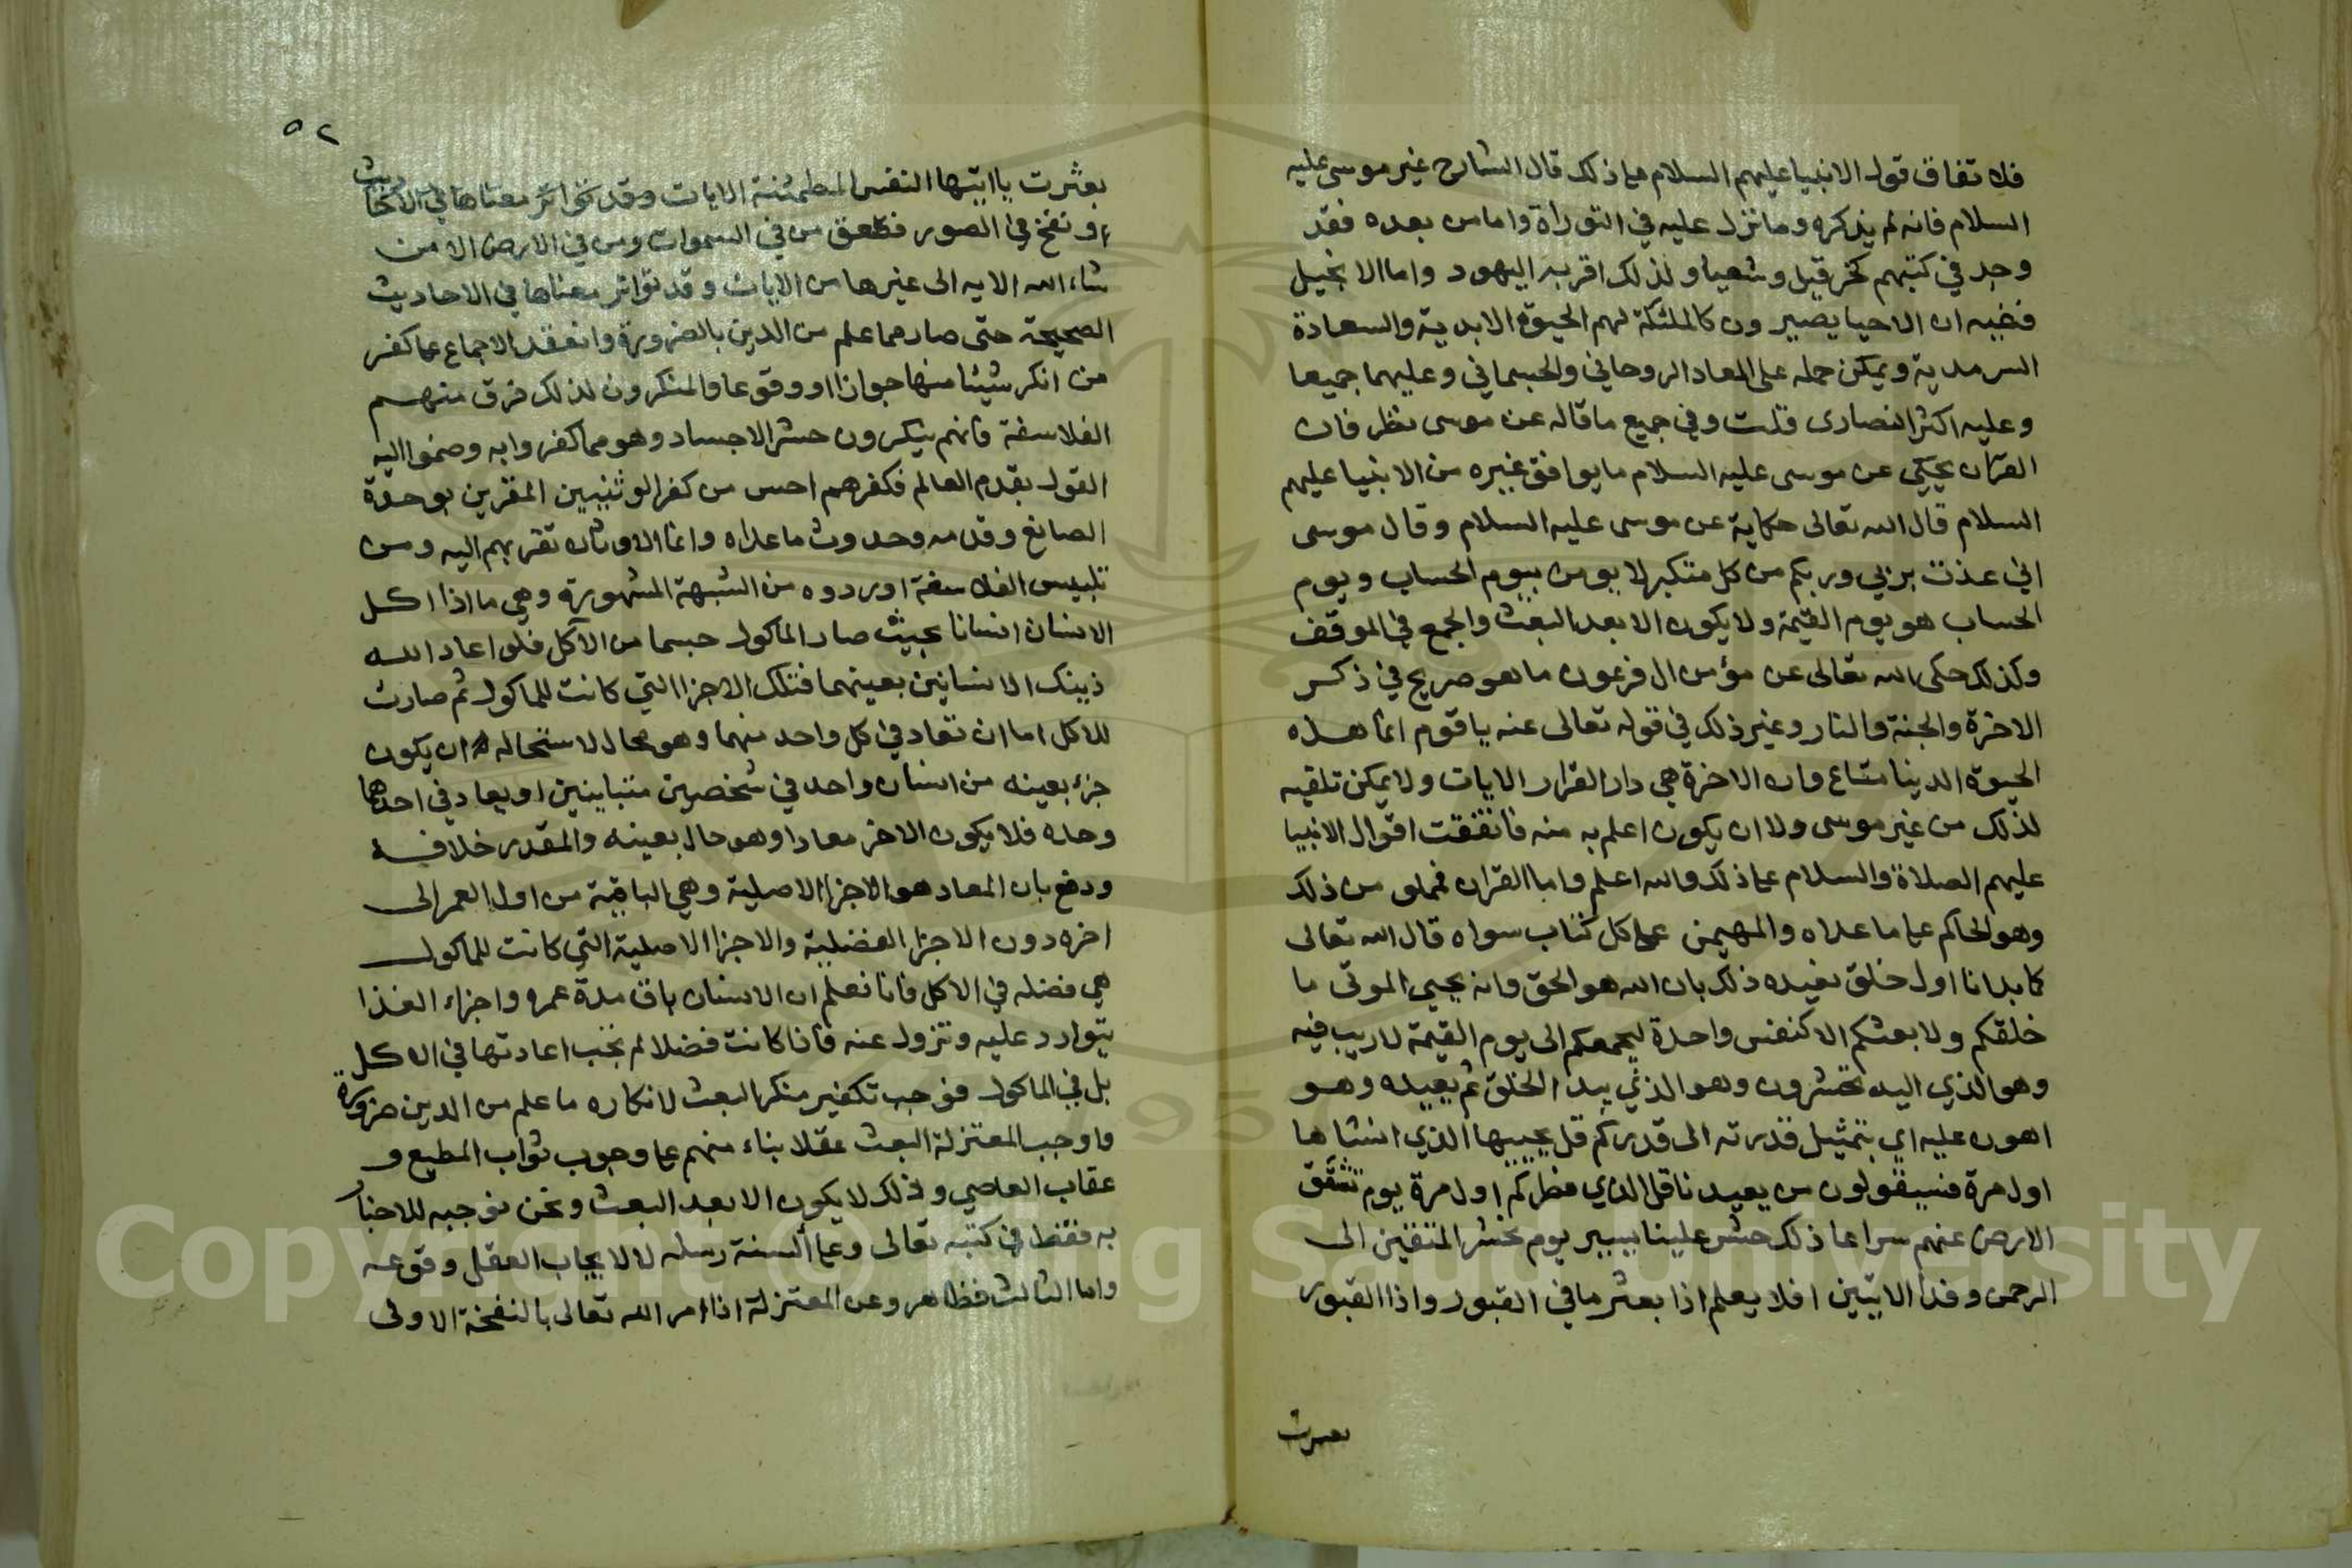 فلاتفاق قول الانبيا عليهم السلام على ذلك قال الشارح غير موسى عليه
السلام فانه لم يذكره وما نزل عليه في التوراة واما من بعده فقد
وجد في كتبهم كخرقيل وشعيا ولذلك اقر به اليهود واما الانجيل
ففيه ان الاحيا يصيرون كالملئكة لهم الحيوة الابدية والسعادة
السرمدية ويمكن حمله على المعاد الروحاني والجسماني وعليهما جميعا
وعليه اكثر النصارى قلت وفي جميع ما قاله عن موسى نظر فان
القران يحكي عن موسى عليه السلام ما يوافق غيره من الانبيا عليهم
السلام قال الله تعالى حكاية عن موسى عليه السلام وقال موسى
اني عذت بربي وربكم من كل متكبر لا يومن بيوم الحساب ويوم
الحساب هو يوم القيمة ولا يكون الا بعد البعث والجمع في الموقف
وكذلك حكى الله تعالى عن مؤمن ال فرعون ما هو صريح في ذكر
الاخرة والجنة والنار وغير ذلك في قوله تعالى عنه يا قوم انما هذه
الحيوة الدينا متاع وان الاخرة هي دار القرار الايات ولا يمكن تلقيه
لذلك من غير موسى ولا ان يكون اعلم به منه فاتفقت اقوال الانبيا
عليهم الصلاة والسلام على ذلك والله اعلم واما القران فمملو من ذلك
وهو الحاكم على ما عداه والمهيمن على كل كتاب سواه قال الله تعالى
كما بدانا اول خلق نعيده ذلك بان الله هو الحق وانه يحيي الموتى ما
خلقكم ولا بعثكم الا كنفس واحدة ليجمعكم الى يوم القيمة لا ريب فيه
وهو الذي اليه تحشرون وهو الذي يبدا الخلق ثم يعيده وهو
اهون عليه اي بتمثيل قدرته الى قدركم قل يحييها الذي انشاها
اول مرة فسيقولون من يعيدنا قل الذي فطركم اول مرة يوم تشقق
الارض عنهم سراعا ذلك حشر علينا يسير يوم نحشر المتقين الى
الرحمن وفدا الايتين افلا يعلم اذا بعثر ما في القبور واذا القبور
بعثرت
٥٢
بعثرت يا ايتها النفس المطمئنة الايات وقد تواتر معناها في الاحاديث
ونفخ في الصور فصعق من في السموات ومن في الارض الا من
شاء الله الايه الى غيرها من الايات وقد تواتر معناها في الاحاديث
الصحيحة حتى صار مما علم من الدين بالضرورة وانعقد الاجماع على كفر
من انكر شيئا منها جوازا او وقوعا والمنكرون لذلك فرق منهم
الفلاسفة فانهم ينكرون حشر الاجساد وهو مما كفروا به وضموا اليه
القول بقدم العالم فكفرهم احس من كفر الوثنيين المقرين بوحدة
الصانع وقدمه وحدوث ما عداه وانما الاوثان تقربهم اليه ومن
تلبيس الفلاسفة اوردوه من الشبهة المشهورة وهي ما اذا اكل
الانسان انسانا بحيث صار الماكول جسما من الآكل فلو اعاد الله
ذينك الانسانين بعينهما فتلك الاجزا التي كانت للماكول ثم صارت
للاكل اما ان تعاد في كل واحد منهما وهو محال لاستحاله ان يكون
جزء بعينه من انسان واحد في شخصين متباينين او يعاد في احدهما
وحده فلا يكون الاخر معادا وهو حال بعينه والمقدر خلافه
ودفع بان المعاد هو الاجزا الاصلية وهي الباقية من اول العمر الى
اخره دون الاجزا الفضلية والاجزا الاصلية التي كانت للماكول
هي فضله في الاكل فانا نعلم ان الانسان باق مدة عمره واجزاء الغذا
يتوارد عليه وتزول عنه فاذا كانت فضلا لم يجب اعادتها في الاكل
بل في الماكول فوجب تكفير منكر البعث لانكاره ما علم من الدين ضرورة
واوجب المعتزلة البعث عقلا بناء منهم على وجوب ثواب المطيع و
عقاب العاصي وذلك لا يكون الا بعد البعث ونحن نوجبه للاخبار
به فقط في كتبه تعالى وعلى السنة رسله لا لايجاب العقل وقوعه
واما الثالث فظاهر وعن المعتزلة اذا امر الله تعالى بالنفخة الاولى